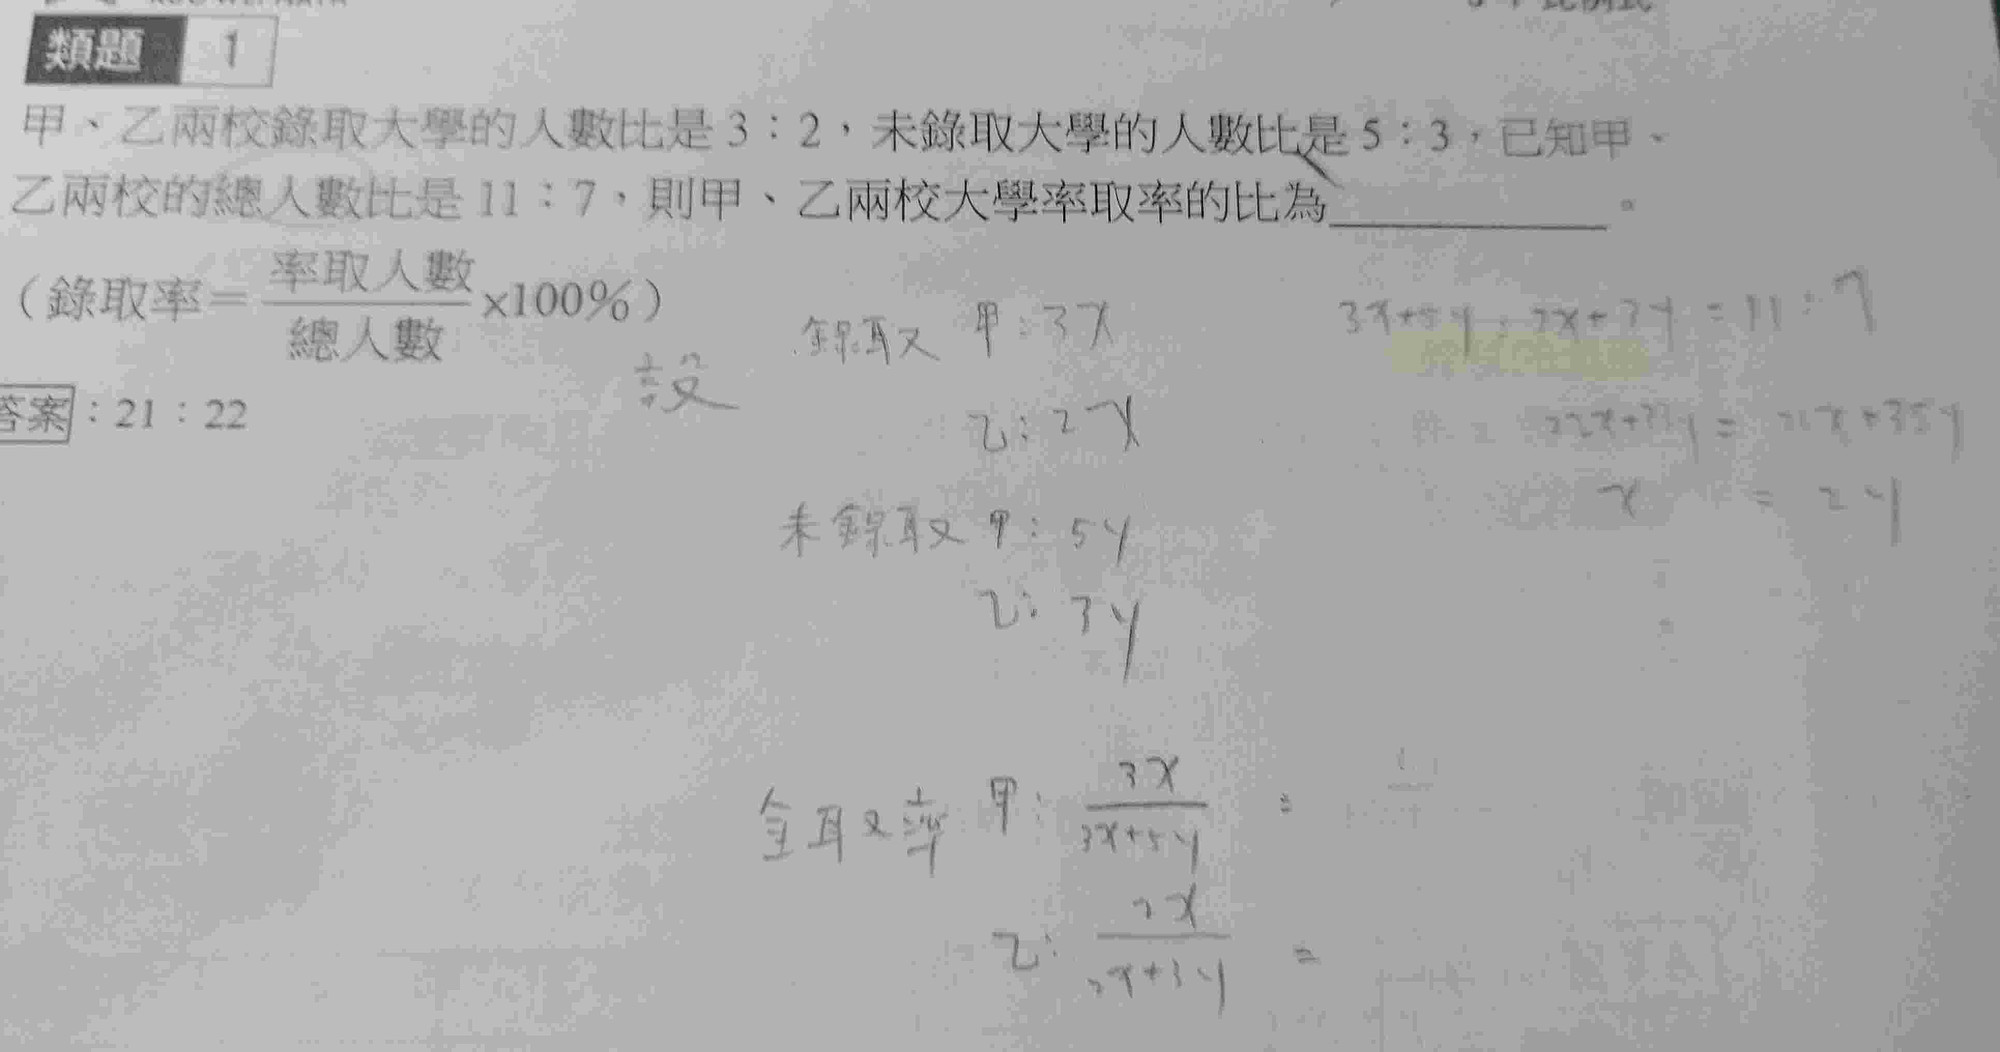 類題 1
甲、乙兩校錄取大學的人數比是 3：2，未錄取大學的人數比是 5：3，已知甲、
乙兩校的總人數比是 11：7，則甲、乙兩校大學率取率的比為＿＿＿＿。
（錄取率＝率取人數/總人數×100%）
答案：21：22
設 錄取 甲：3x
乙：2x
未錄取 甲：5y
乙：3y
3x+5y：2x+3y = 11：7
22x+33y = 21x+35y
x = 2y
金取率 甲：3x/3x+5y =
乙：2x/2x+3y =